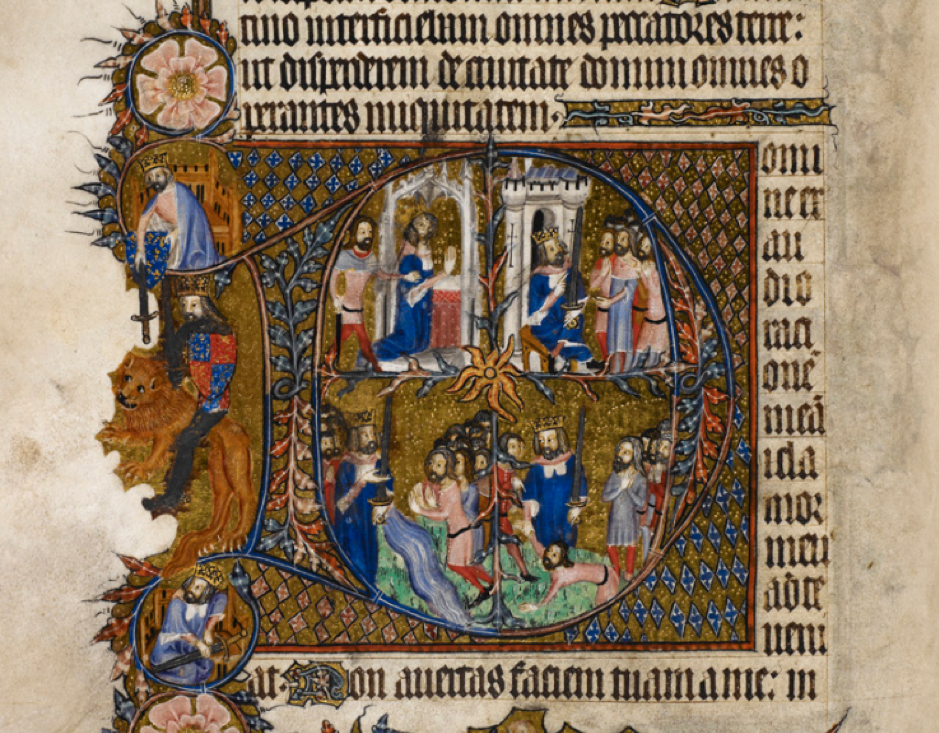 tino interficiebam omnes peccatores terre:
ut disperderem de ciuitate domini omnes o
perantes iniquitatem.
Domi
ne ex
au
di o
raci
onē
meā
⁊ cla
mor
meu
ad te
ueni
at. Non auertas faciem tuam a me: in